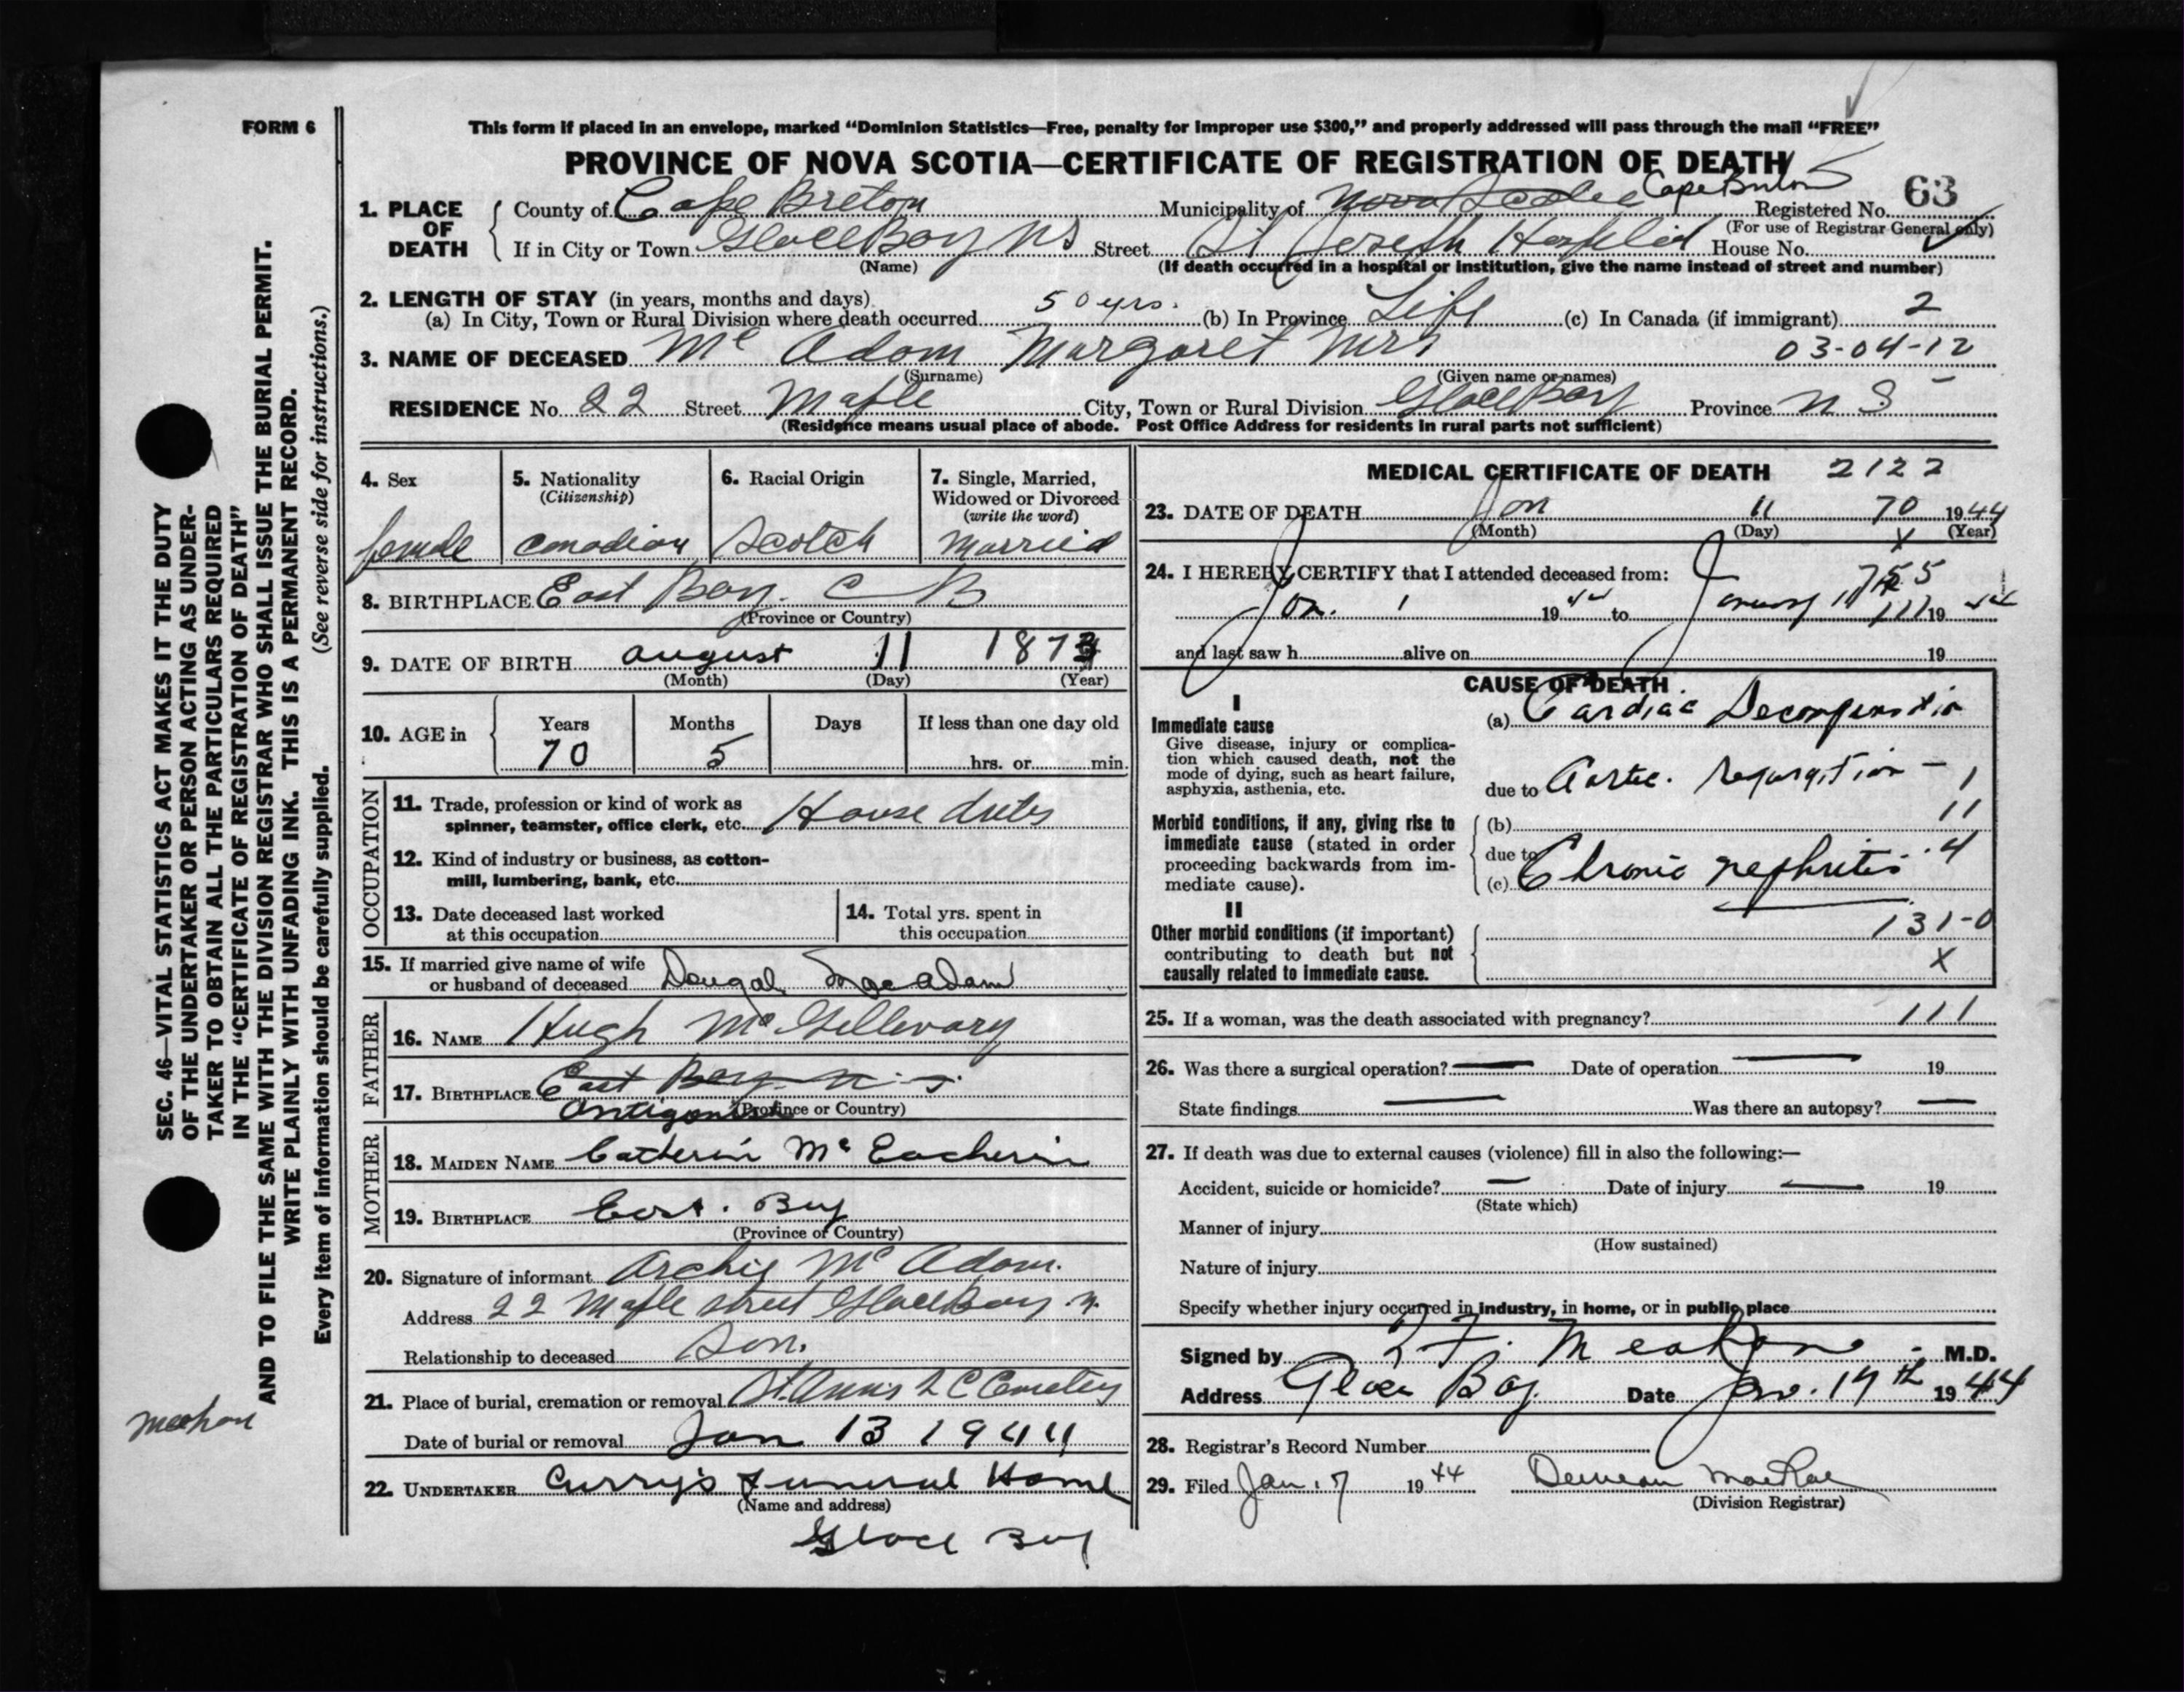 FORM 6
This form if placed in an envelope, marked “Dominion Statistics—Free, penalty for improper use $300,” and properly addressed will pass through the mail “FREE”
PROVINCE OF NOVA SCOTIA—CERTIFICATE OF REGISTRATION OF DEATH
1. PLACE OF DEATH
County of Cape Breton Municipality of Nova Scotia Cape Breton Registered No. 63
(For use of Registrar General only)
If in City or Town Glace Bay NS Street St Joseph Hospital House No.
(Name) (If death occurred in a hospital or institution, give the name instead of street and number)
2. LENGTH OF STAY (in years, months and days)
(a) In City, Town or Rural Division where death occurred 50 yrs. (b) In Province Life (c) In Canada (if immigrant) 2
3. NAME OF DECEASED Mc Adam Margaret Mrs 03-04-12
(Surname) (Given name or names)
RESIDENCE No. 22 Street Maple City, Town or Rural Division Glace Bay Province N S
(Residence means usual place of abode. Post Office Address for residents in rural parts not sufficient)
4. Sex
female
5. Nationality
(Citizenship)
Canadian
6. Racial Origin
Scotch
7. Single, Married,
Widowed or Divorced
(write the word)
Married
8. BIRTHPLACE East Bay. C B
(Province or Country)
9. DATE OF BIRTH August 11 1873
(Month) (Day) (Year)
10. AGE in
Years Months Days If less than one day old
70 5 hrs. or min.
OCCUPATION
11. Trade, profession or kind of work as
spinner, teamster, office clerk, etc. House duties
12. Kind of industry or business, as cotton-
mill, lumbering, bank, etc.
13. Date deceased last worked
at this occupation
14. Total yrs. spent in
this occupation
15. If married give name of wife
or husband of deceased Dougal MacAdam
FATHER
16. NAME Hugh Mc Gillevary
17. BIRTHPLACE East Bay N. S.
Antigonish (Province or Country)
MOTHER
18. MAIDEN NAME Catherin Mc Eacherin
19. BIRTHPLACE East. Bay
(Province or Country)
20. Signature of informant Archie Mc Adam.
Address 22 Maple street Glace Bay N.
Relationship to deceased Son.
21. Place of burial, cremation or removal St. Ann's Cemetery
Date of burial or removal Jan 13 1944
22. UNDERTAKER Curry's Funeral Home
(Name and address)
Glace Bay
MEDICAL CERTIFICATE OF DEATH 2122
23. DATE OF DEATH Jan 11 70 1944
(Month) (Day) X (Year)
24. I HEREBY CERTIFY that I attended deceased from: 755
Jan. 1 1944 to January 11 111 1944
and last saw h alive on 19
CAUSE OF DEATH
I
Immediate cause
Give disease, injury or complica-
tion which caused death, not the
mode of dying, such as heart failure,
asphyxia, asthenia, etc.
(a) Cardiac Decompensation
due to Aortic. regurgitation – 1
Morbid conditions, if any, giving rise to
immediate cause (stated in order
proceeding backwards from im-
mediate cause).
(b) 11
due to 4
(c) Chronic nephritis
II
Other morbid conditions (if important)
contributing to death but not
causally related to immediate cause.
131-0
X
25. If a woman, was the death associated with pregnancy? 111
26. Was there a surgical operation? — Date of operation — 19
State findings — Was there an autopsy? —
27. If death was due to external causes (violence) fill in also the following:—
Accident, suicide or homicide? — Date of injury — 19
(State which)
Manner of injury
(How sustained)
Nature of injury
Specify whether injury occurred in industry, in home, or in public place
Signed by Meahan M.D.
Address Glace Bay. Date Jan. 17th 1944
28. Registrar's Record Number
29. Filed Jan. 17 1944 Duncan MacRae
(Division Registrar)
SEC. 46—VITAL STATISTICS ACT MAKES IT THE DUTY
OF THE UNDERTAKER OR PERSON ACTING AS UNDER-
TAKER TO OBTAIN ALL THE PARTICULARS REQUIRED
IN THE “CERTIFICATE OF REGISTRATION OF DEATH”
AND TO FILE THE SAME WITH THE DIVISION REGISTRAR WHO SHALL ISSUE THE BURIAL PERMIT.
WRITE PLAINLY WITH UNFADING INK. THIS IS A PERMANENT RECORD.
Every item of information should be carefully supplied. (See reverse side for instructions.)
Meahan